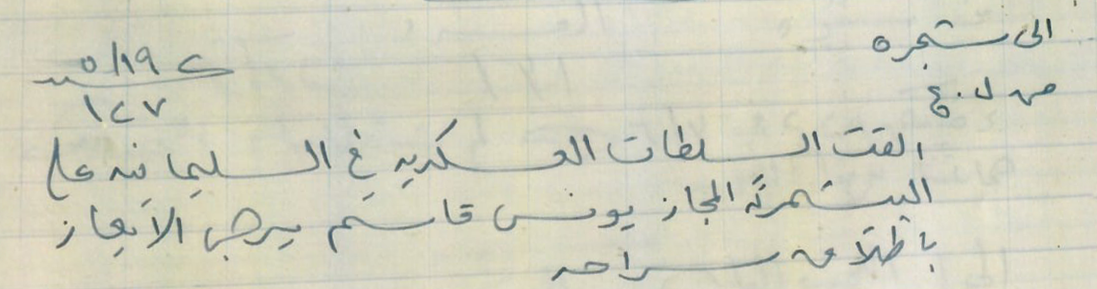 الى شجره
من ل.ع
٥/١٩ ح
١٢٧
القت السلطات العسكريه في السليمانيه على
البيشمرگه المجاز يونس قاسم يرجى الايعاز
باطلاق سراحه